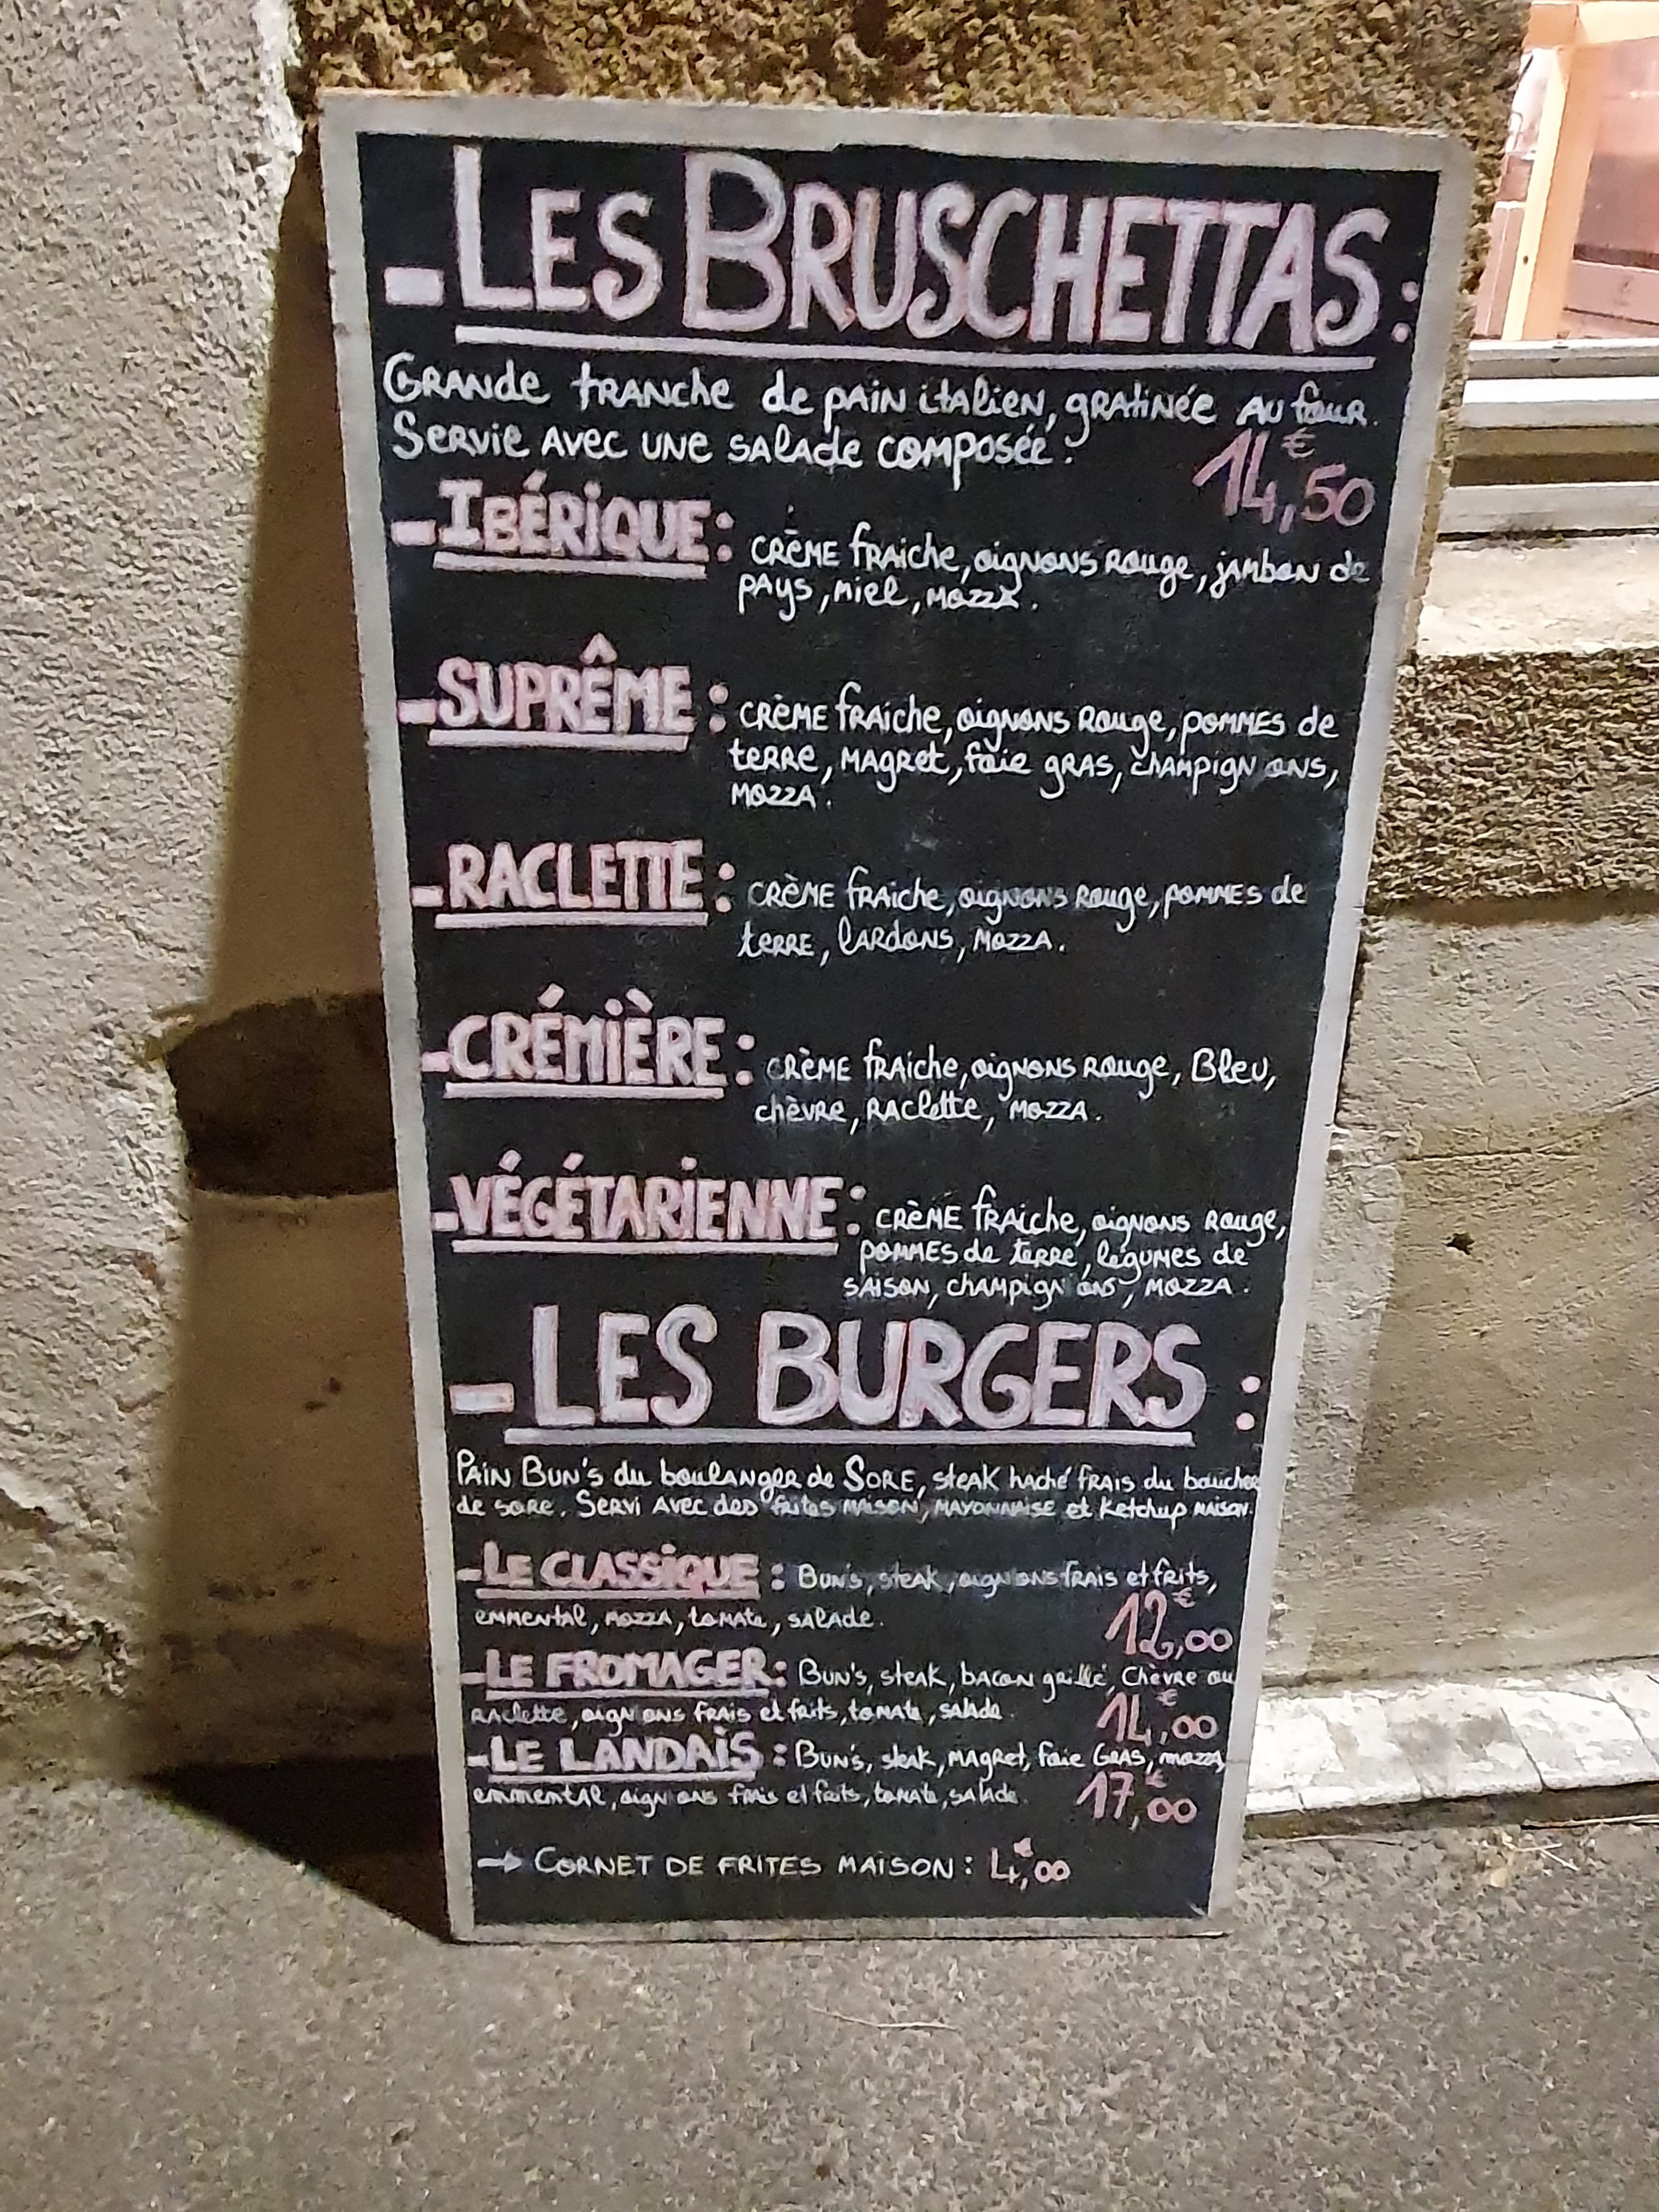 - LES BRUSCHETTAS :
GRANDE TRANCHE de PAIN italien, gratinée au four.
SERVIE AVEC UNE SALADE COMPOSÉE. 14,50€
- IBÉRIQUE : CRÈME fRAiche, oignons Rouge, jambon de
pays, miel, mozza.
- SUPRÊME : CRÈME fRAiche, oignons Rouge, pommes de
terre, magret, foie gras, champignons,
mozza.
- RACLETTE : CRÈME fRAiche, oignons Rouge, pommes de
terre, lardons, mozza.
- CRÉMIÈRE : CRÈME fRAiche, oignons Rouge, Bleu,
chèvre, Raclette, mozza.
- VÉGÉTARIENNE : CRÈME fRAiche, oignons Rouge,
pommes de terre, légumes de
saison, champignons, mozza.
- LES BURGERS :
Pain Bun's du boulanger de SORE, steak haché frais du boucher
de sore. Servi avec des frites maison, mayonnaise et Ketchup maison.
- LE CLASSIQUE : Bun's, steak, oignons frais et frits,
emmental, mozza, tomate, salade. 12,00€
- LE FROMAGER : Bun's, steak, bacon grillé, Chèvre ou
Raclette, oignons frais et frits, tomate, salade. 14,00€
- LE LANDAIS : Bun's, steak, magret, foie Gras, mozza,
emmental, oignons frais et frits, tomate, salade. 17,00€
→ CORNET DE FRITES MAISON : 4,00€